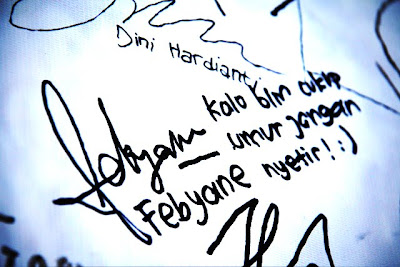 Dini Hardianti
kalo blm cukup
Febyane umur jangan
Febyane nyetir! :)